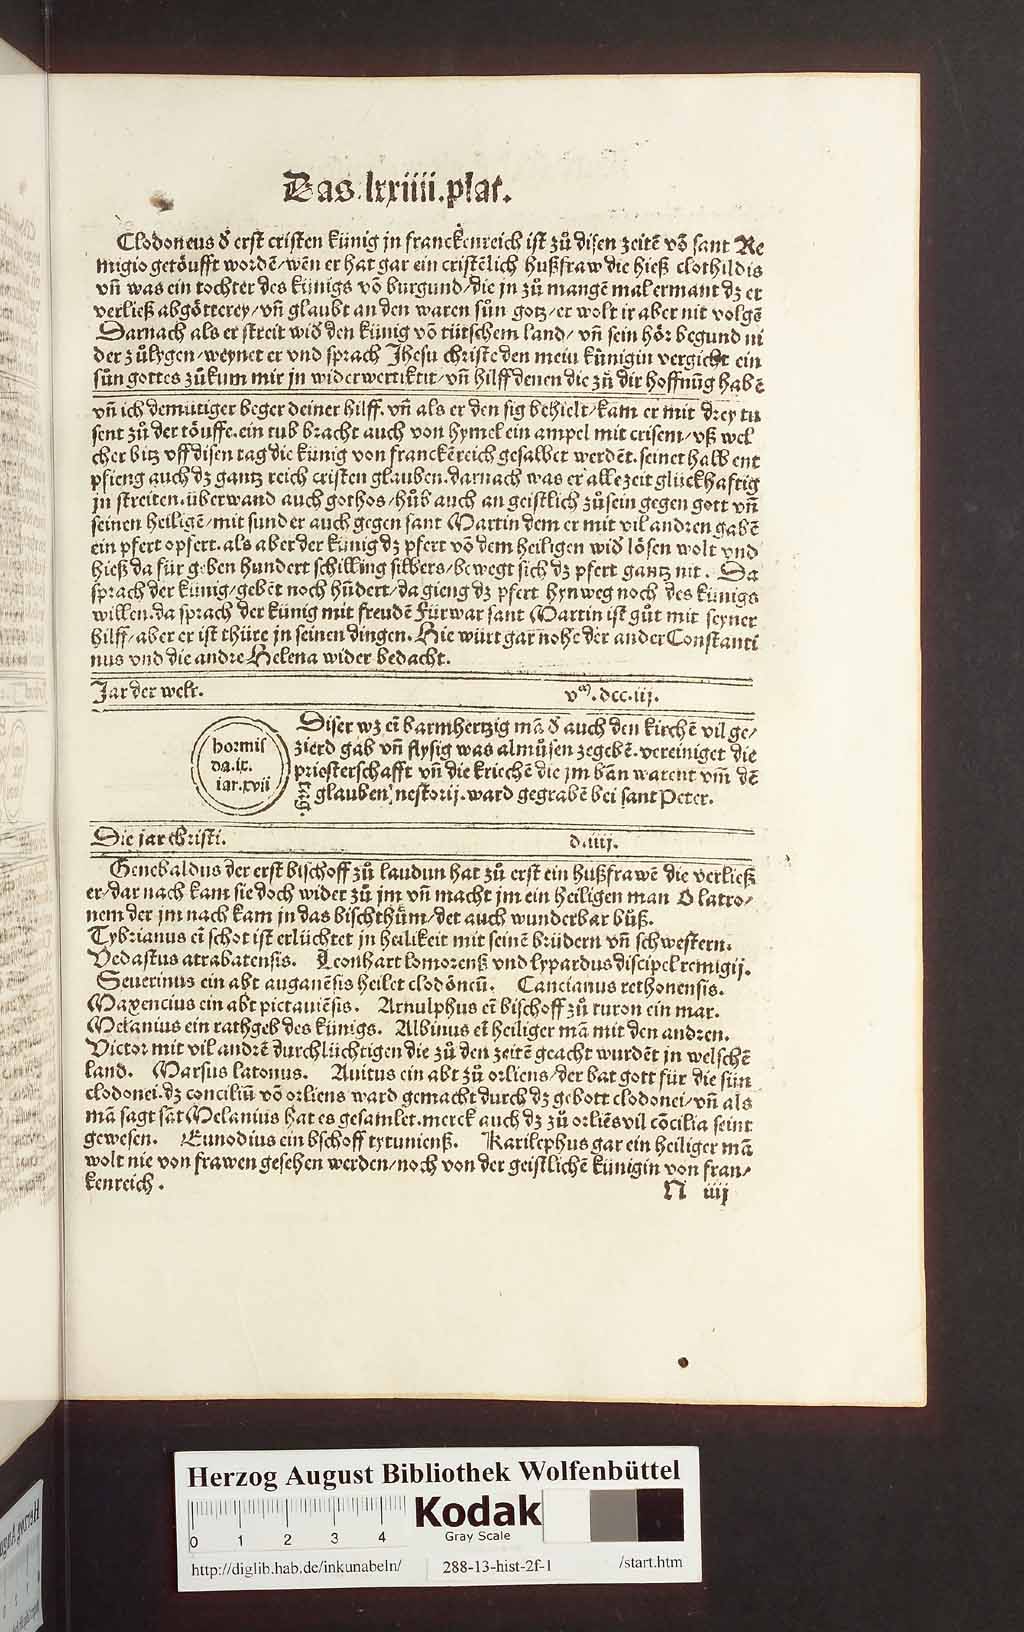 Das.lxxiiii.plat.
Clodoneus d̕ erst cristen künig jn franckenreich ist zů disen zeitē vō sant Re
migio getöufft wordē/wēn er hat gar ein cristēlich hußfraw die hieß clothildis
vñ was ein tochter des künigs vō burgund/die jn zů mangē mal ermant dz er
verließ abgötterey/vñ glaubt an den waren sůn gotz/er wolt ir aber nit volgē
Darnach als er streit wid̕ den künig vō tütschem land/vñ sein hör begund ni
der zůlygen/weynet er vnd sprach Jhesu christe den mein künigin vergicht ein
sůn gottes zůkum mir jn widerwertiktit/vñ hilff denen die zů dir hoffnūg habē
vñ ich demütiger beger deiner hilff. vñ als er den sig behielt/kam er mit drey tu
sent zů der töuffe.ein tub bracht auch von hymel ein ampel mit crisem/vß wel
cher bitz vff disen tag die künig von franckēreich gesalbet werdēt.seinet halb ent
pfieng auch dz gantz reich cristen glauben.darnach was er alle zeit glückhaftig
jn streiten.überwand auch gothos/hůb auch an geistlich zůsein gegen gott vñ
seinen heiligē/mit sunder auch gegen sant Martin dem er mit vil andren gabē
ein pfert opfert.als aber der künig dz pfert vō dem heiligen wid̕ lösen wolt vnd
hieß da für geben hundert schilling silbers/bewegt sich dz pfert gantz nit. Da
sprach der künig/gebēt noch hūdert/da gieng dz pfert hynweg noch des künigs
willen.da sprach der künig mit freudē Fürwar sant Martin ist gůt mit seyner
hilff/aber er ist thüre jn seinen dingen.Hie würt gar nohe der ander Constanti
nus vnd die andre Helena wider bedacht.
Jar der welt. vᵐ.dcc.iij.
hormis
da.ix.
iar.xvij
Diser wz eī barmhertzig mā d̕ auch den kirchē vil ge/
zierd gab vñ flysig was almůsen zegebē.vereiniget die
priesterschafft vñ die kriechē die jm ban warent vm̄ dē
glauben nestorij.ward gegrabē bei sant Peter.
Die jar christi. d.iiij.
Genebaldus der erst bischoff zů laudun hat zů erst ein hußfrawē die verließ
er/dar nach kam sie doch wider zů jm vñ macht jm ein heiligen man O latro/
nem der jm nach kam jn das bischthům/det auch wunderbar bůß.
Tybrianus eī schot ist erlüchtet jn heilikeit mit seinē brüdern vñ schwestern.
Vedastus atrabatensis. Leonhart lomorenß vnd lypardus discipel remigij.
Seuerinus ein abt auganēsis heilet clodōneū. Cancianus rethonensis.
Maxencius ein abt pictauiēsis. Arnulphus eī bischoff zů turon ein mar.
Melanius ein rathgeb des künigs. Albinus eī heiliger mā mit den andren.
Victor mit vil andrē durchlüchtigen die zů den zeitē geacht wurdēt jn welschē
land. Marsus latonus. Auitus ein abt zů orliens/der bat gott für die sün
clodonei.dz conciliū vō orliens ward gemacht durch dz gebott clodonei/vñ als
mā sagt sāt Melanius hat es gesamlet.merck auch dz zů orliēs vil cōcilia seint
gewesen. Eunodius ein bschoff tytunienß. Karilephus gar ein heiliger mā
wolt nie von frawen gesehen werden/noch von der geistlichē künigin von fran/
kenreich.
N iiij
Herzog August Bibliothek Wolfenbüttel
0 1 2 3 4
Kodak
Gray Scale
http://diglib.hab.de/inkunabeln/ 288-13-hist-2f-1 /start.htm